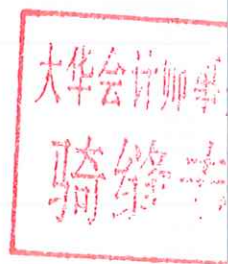 大华会计师事
骑缝章